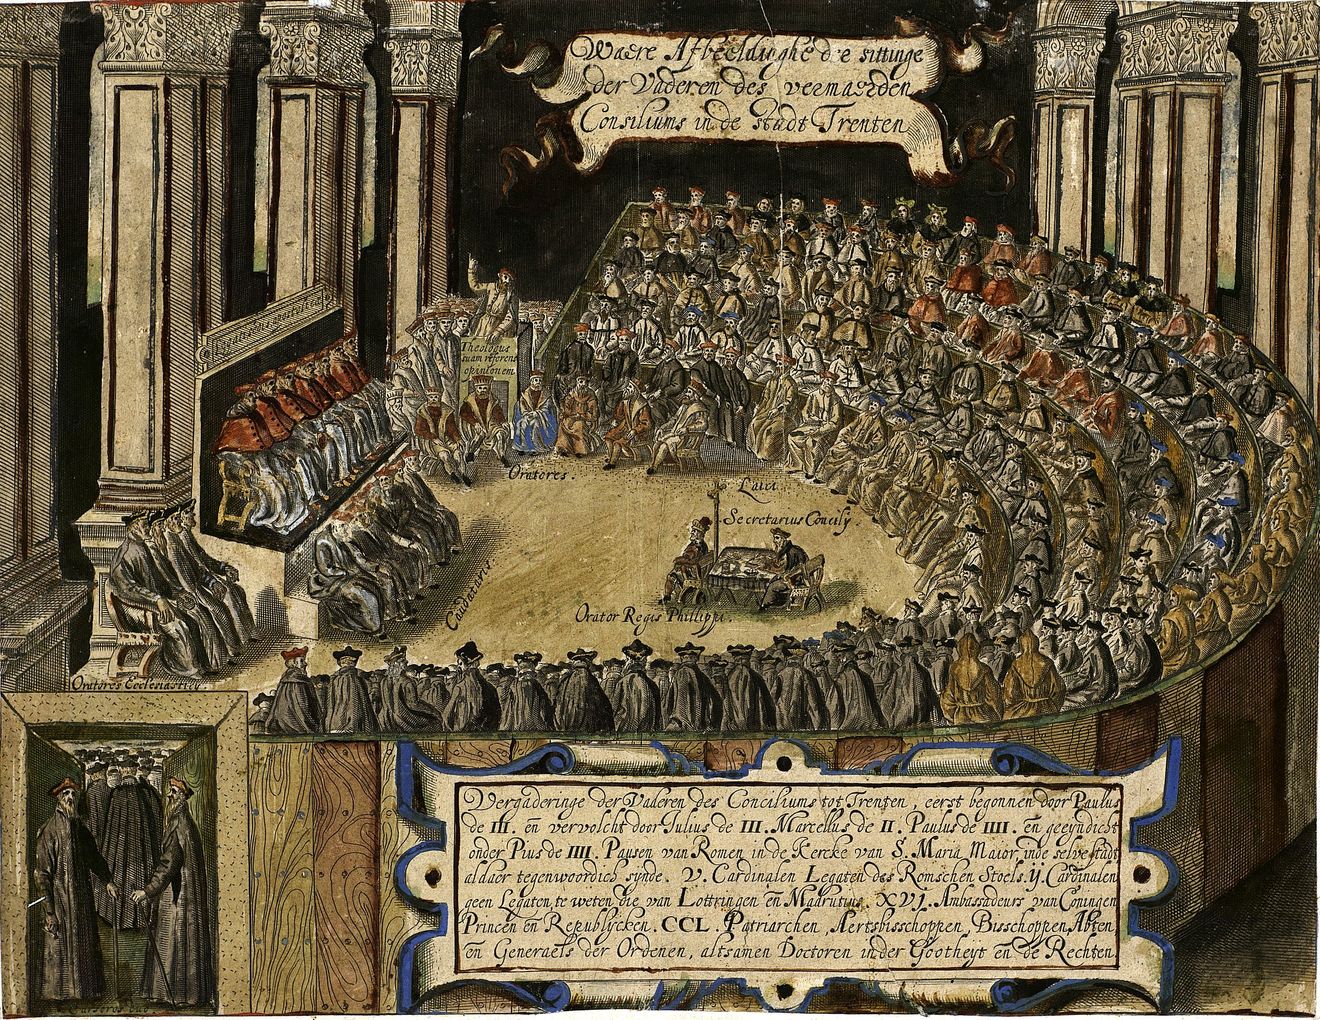 Waere Afbeeldinghe d'e sittinge
der Vaderen des vermaerden
Consiliums in de stadt Trenten
Theologus
suam referens
opinionem
Oratores.
Laici.
Secretarius Concilÿ.
Caudetarii
Orator Regis Phillippi.
Oratores Ecclesiastici.
Vergaderinge der Vaderen des Conciliums tot Trenten, eerst begonnen door Paulus
de III. en̄ vervolcht door Julius de III. Marcellus de II. Paulus de IIII. en̄ geeyndicht
onder Pius de IIII. Pausen van Romen in de Kercke van S. Maria Maior, inde selve stadt
aldaer tegenwoordich synde. V. Cardinalen Legaten des Romschen Stoels. ij. Cardinalen
geen Legaten, te weten die van Lottringen en̄ Madrutius. XVI. Ambassadeurs van Coningen
Princen en̄ Republycken. CCL. Patriarchen, Aertsbisschoppen, Bisschoppen, Abten,
en̄ Generaels der Ordenen, altsamen Doctoren in der Gootheyt en̄ de Rechten.
Cursores duo